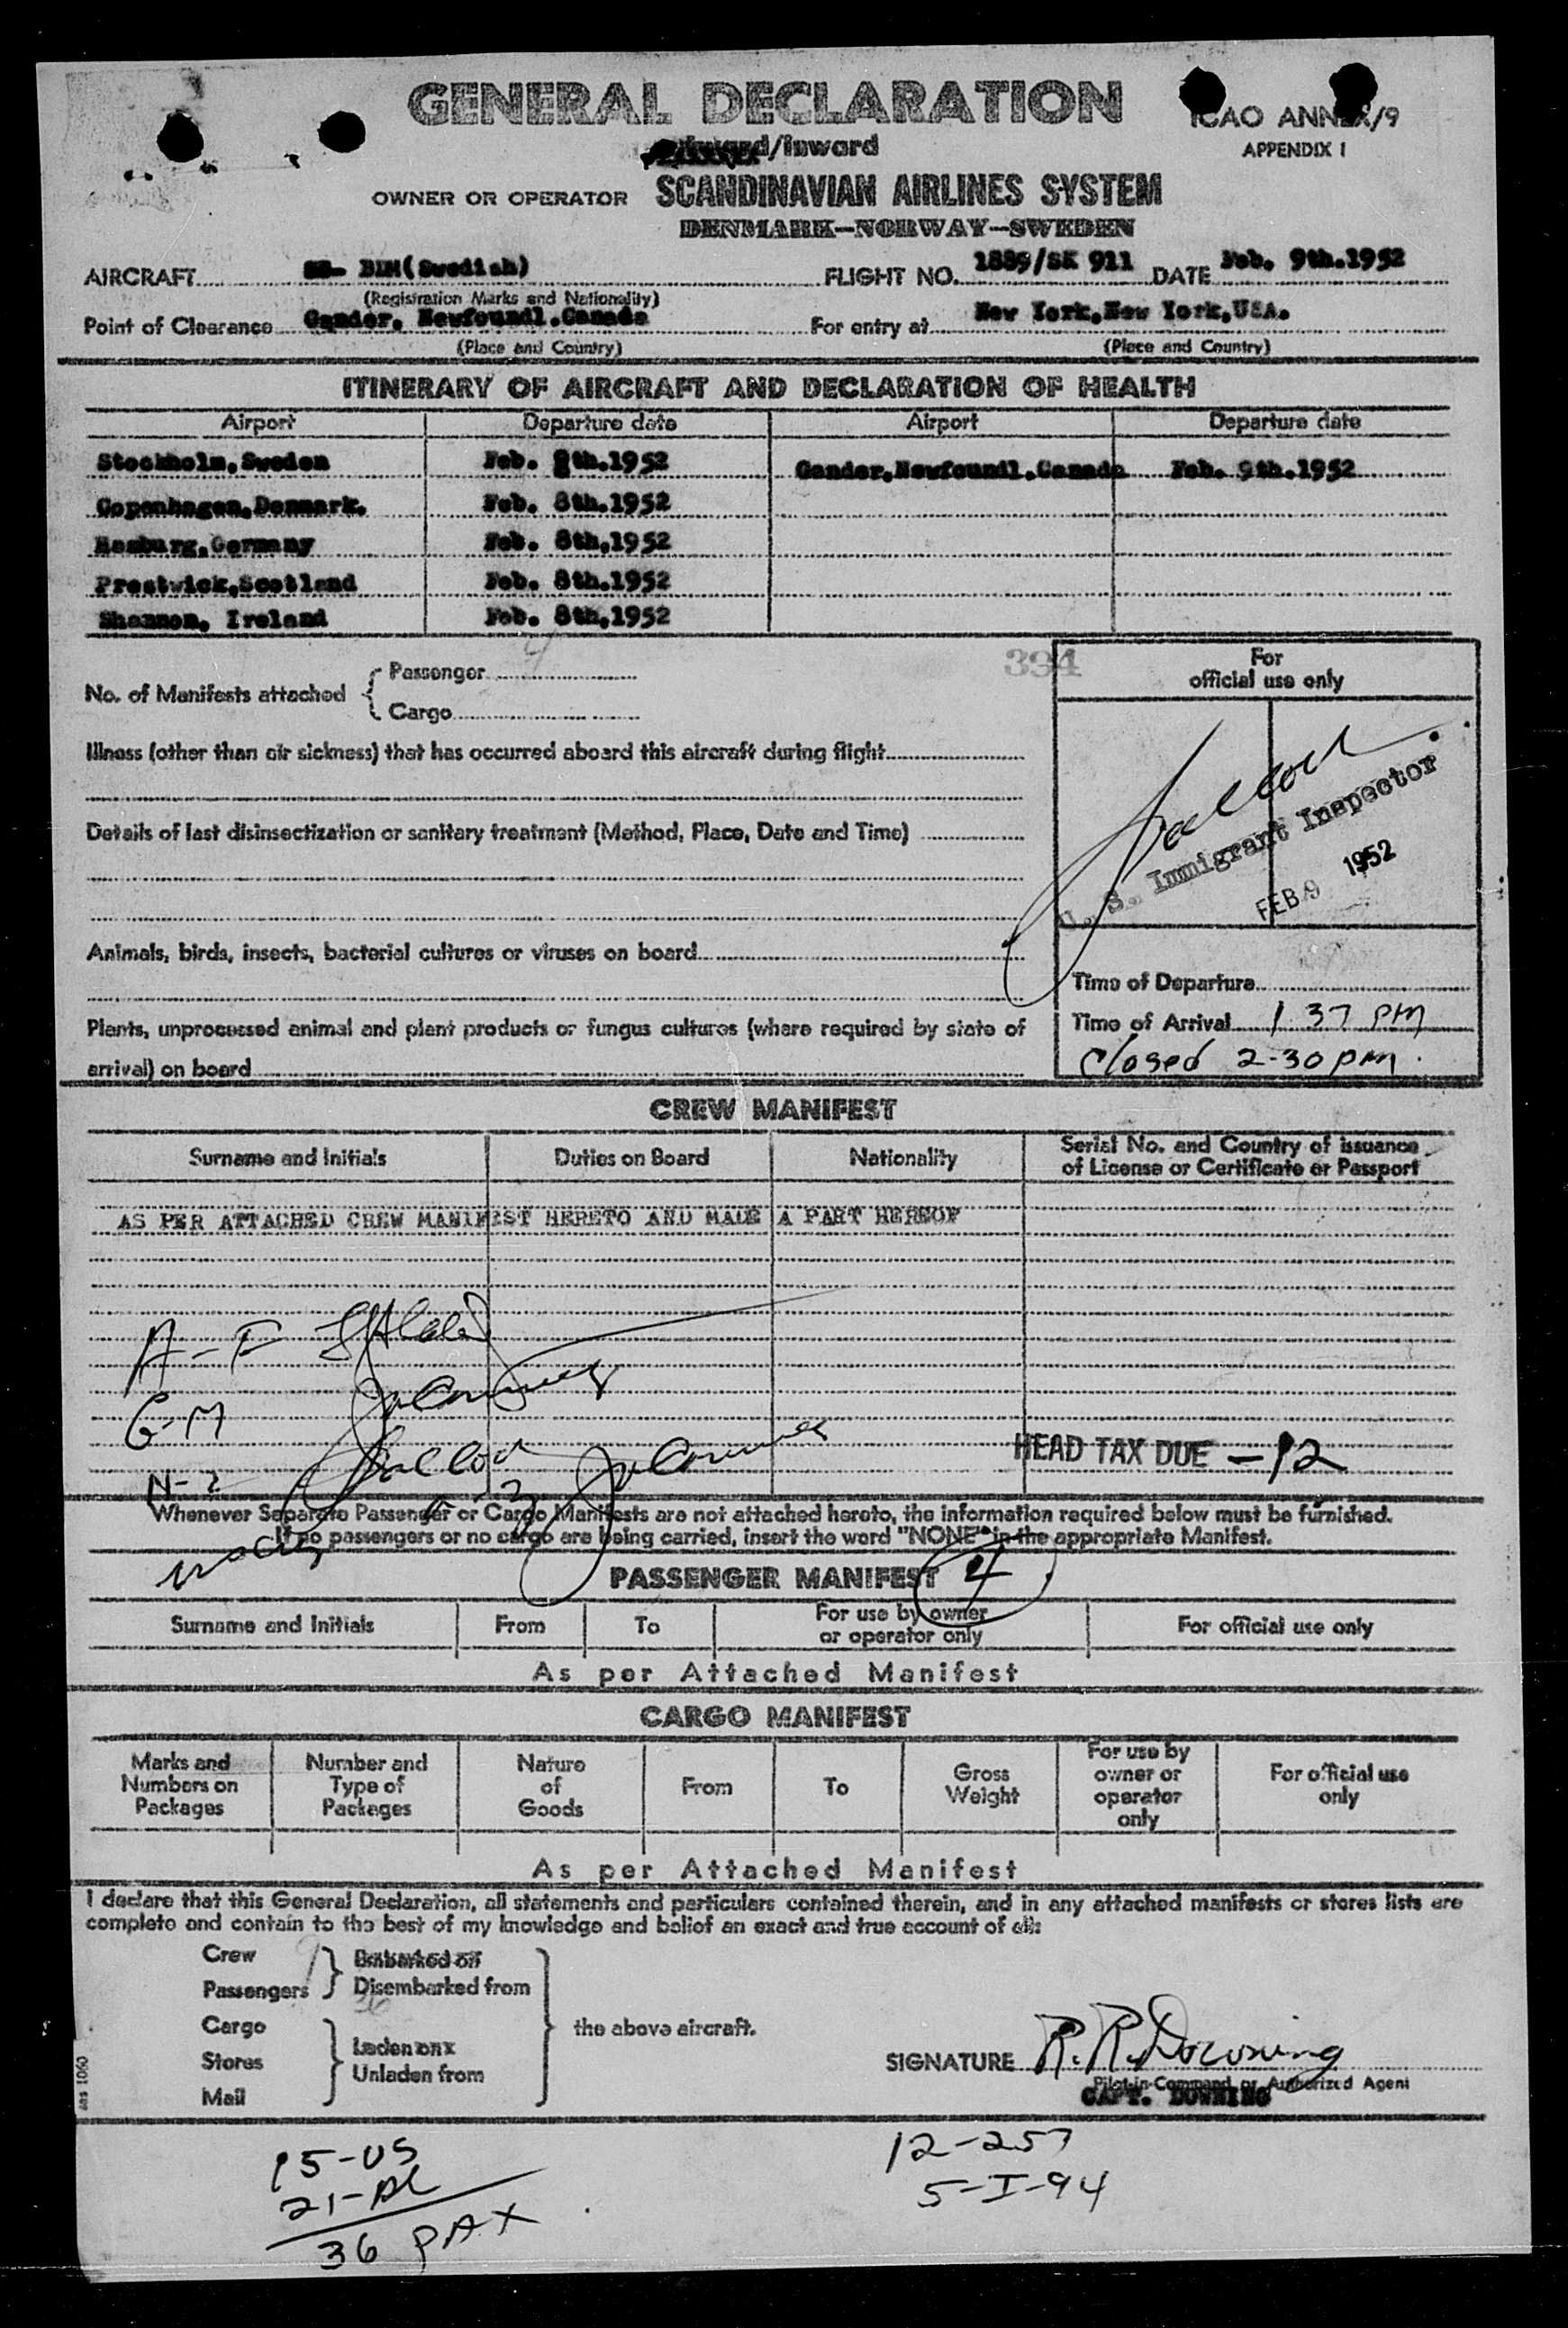 GENERAL DECLARATION
ICAO ANNEX/9
APPENDIX I
/Inward
OWNER OR OPERATOR SCANDINAVIAN AIRLINES SYSTEM
DENMARK—NORWAY—SWEDEN
AIRCRAFT SE- BDM(Swedish) FLIGHT NO. 1889/SK 911 DATE Feb. 9th.1952
(Registration Marks and Nationality)
Point of Clearance Gander, Newfoundl.Canada For entry at New York,New York,USA.
(Place and Country) (Place and Country)
ITINERARY OF AIRCRAFT AND DECLARATION OF HEALTH
Airport Departure date Airport Departure date
Stockholm,Sweden Feb. 8th.1952 Gander,Newfoundl.Canada Feb. 9th.1952
Copenhagen,Denmark. Feb. 8th.1952
Hamburg,Germany Feb. 8th,1952
Prestwick,Scotland Feb. 8th.1952
Shannon, Ireland Feb. 8th,1952
4
334
No. of Manifests attached { Passenger
Cargo
For
official use only
Illness (other than air sickness) that has occurred aboard this aircraft during flight
Details of last disinsectization or sanitary treatment (Method, Place, Date and Time)
U. S. Immigrant Inspector
FEB 9 1952
Animals, birds, insects, bacterial cultures or viruses on board
Time of Departure
Plants, unprocessed animal and plant products or fungus cultures (where required by state of
arrival) on board
Time of Arrival 1 37 PM
Closed 2-30 pm.
CREW MANIFEST
Surname and Initials Duties on Board Nationality Serial No. and Country of issuance
of License or Certificate or Passport
AS PER ATTACHED CREW MANIFEST HERETO AND MADE A PART HEREOF
A-F
G-M
N-Z
HEAD TAX DUE - 12
Whenever Separate Passenger or Cargo Manifests are not attached hereto, the information required below must be furnished.
If no passengers or no cargo are being carried, insert the word "NONE" in the appropriate Manifest.
PASSENGER MANIFEST 4
Surname and Initials From To For use by owner
or operator only For official use only
As per Attached Manifest
CARGO MANIFEST
Marks and
Numbers on
Packages
Number and
Type of
Packages
Nature
of
Goods
From
To
Gross
Weight
For use by
owner or
operator
only
For official use
only
As per Attached Manifest
I declare that this General Declaration, all statements and particulars contained therein, and in any attached manifests or stores lists are
complete and contain to the best of my knowledge and belief an exact and true account of all:
Crew 9 Embarked on
Passengers Disembarked from
36
Cargo
the above aircraft.
Stores Laden on
Unladen from
Mail
sas 1060
SIGNATURE R. R. Downing
Pilot-in-Command or Authorized Agent
CAPT. DOWNING
15-US
21-AL
36 PAX
12-257
5-I-94